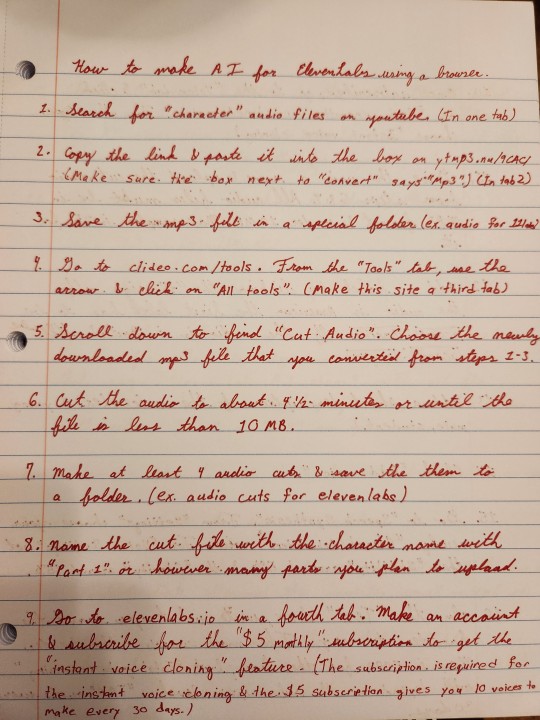 How to make AI for ElevenLabs using a browser.
1. Search for "character" audio files on youtube. (In one tab)
2. Copy the link & paste it into the box on ytmp3.nu/9CAG/
(Make sure the box next to "convert" says "Mp3") (In tab 2)
3. Save the mp3 file in a special folder (ex. audio for 11labs)
4. Go to clideo.com/tools. From the "Tools" tab, use the
arrow & click on "All tools". (Make this site a third tab)
5. Scroll down to find "Cut Audio". Choose the newly
downloaded mp3 file that you converted from steps 1-3.
6. Cut the audio to about 4 1/2 minutes or until the
file is less than 10 MB.
7. Make at least 4 audio cuts & save the them to
a folder. (ex. audio cuts for elevenlabs)
8. Name the cut file with the character name with
"Part 1" or however many parts you plan to upload.
9. Go to elevenlabs.io in a fourth tab. Make an account
& subscribe for the "$5 monthly" subscription to get the
"instant voice cloning" feature. (The subscription is required for
the instant voice cloning & the $5 subscription gives you 10 voices to
make every 30 days.)